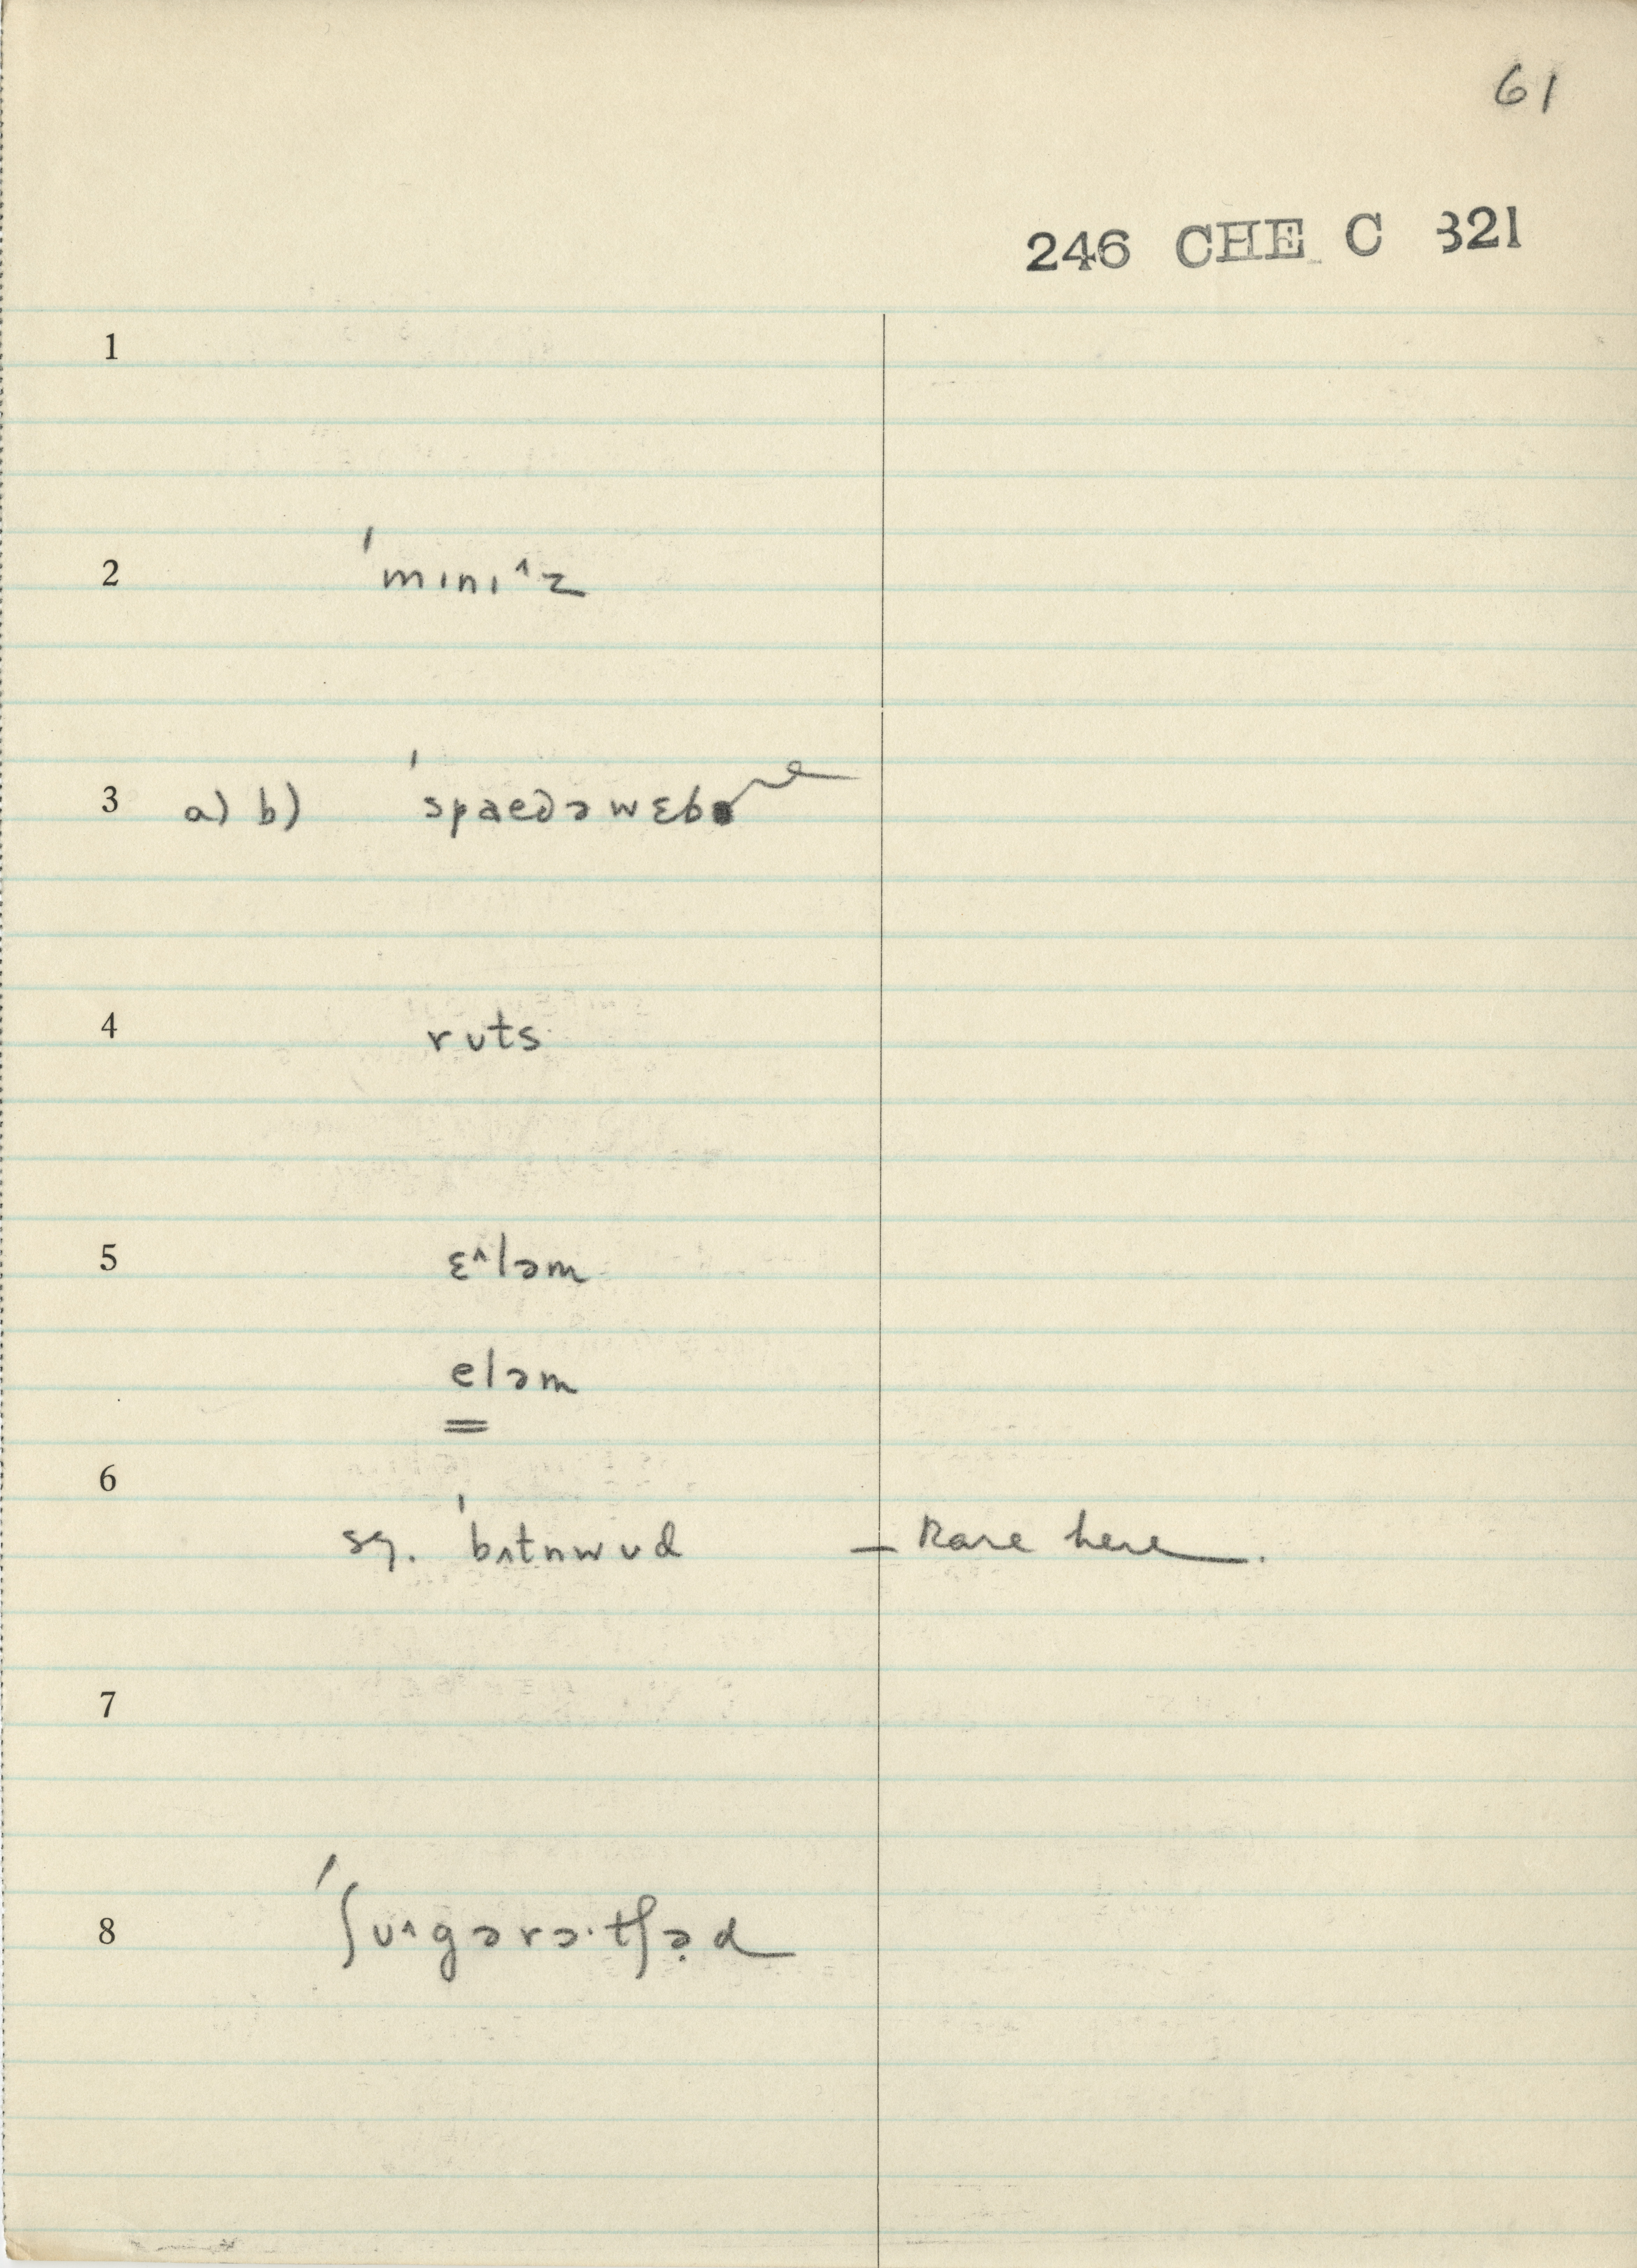 61
246 CHE C 321
1
2 ˈmɪnɪ^z
3 a) b) ˈspaedəwɛb
4 rᴜts
5 ɛ^ləm
eləm
6
sg. ˈbʌtnwᴜd – Rare here.
7
8 ˈʃᴜ^gərə·tʃə̣d